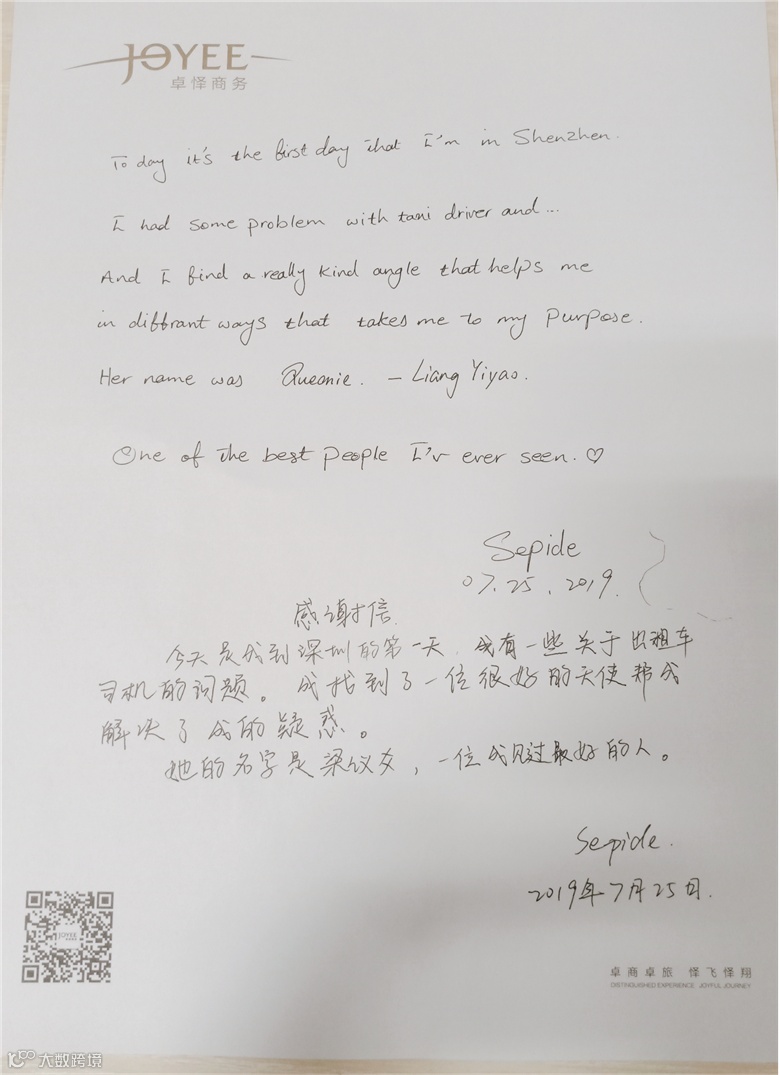 JOYEE
卓怿商务
To day it's the first day that I'm in Shenzhen.
I had some problem with taxi driver and...
And I find a really kind angle that helps me
in diffrant ways that takes me to my purpose.
Her name was Queenie. - Liang Yiyao.
One of the best people I'v ever seen. ♡
Sepide
07.25.2019.
感谢信
今天是我到深圳的第一天.我有一些关于出租车
司机的问题。我找到了一位很好的天使帮我
解决了我的疑惑。
她的名字是梁议友,一位我见过最好的人。
Sepide.
2019年7月25日.
JOYEE
卓商卓旅 怿飞怿翔
DISTINGUISHED EXPERIENCE JOYFUL JOURNEY
大数跨境